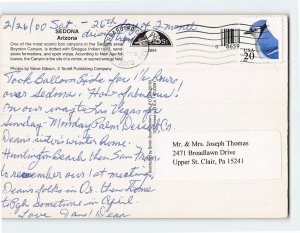 2/26/00 Sat - 26th day of travel
SEDONA
Arizona
One of the most scenic box canyons in the Sedona area,
Boynton Canyon, is dotted with Sinagua Indian ruins, sand-
stone formations, and open vistas. According to New Age fol-
lowers, the canyon is the site of a vortex, or sacred energy field.
Photos by Steve Ellison, © Terrell Publishing Company
USA
20
Took Balloon Ride for 1½ hours
over Sedona: How fabulous!
On our way to Las Vegas for
Sunday - Monday Palm Desert, Ca.
Dean's sister's winter home.
Huntington Beach then San Fran.
to remember our 1st meeting.
Dean's folks in Or. then home
to Pgh sometime in April.
Love Jan & Dean
Mr. & Mrs. Joseph Thomas
2471 Broadlawn Drive
Upper St. Clair, Pa 15241